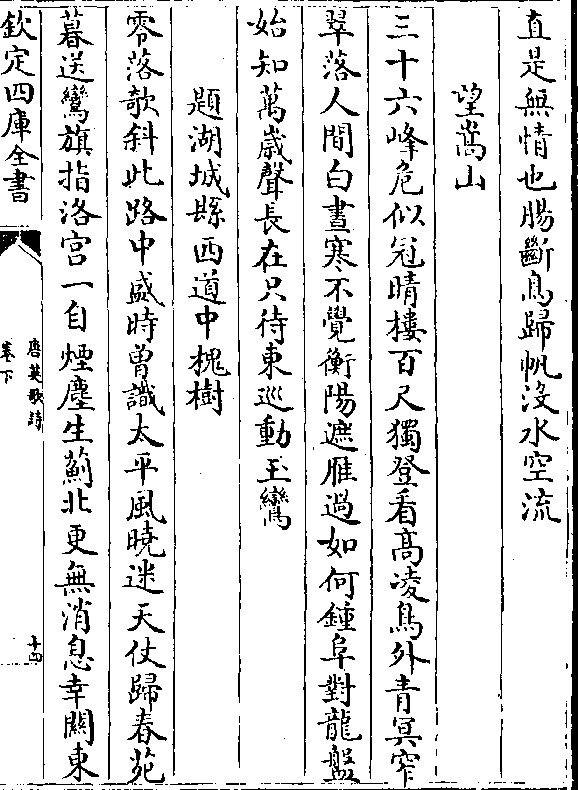 直是無情也腸斷鳥歸帆没水空流
望嵩山
三十六峰危似冠晴樓百尺獨登看高凌鳥外青冥窄
翠落人間白晝寒不覺衡陽遮雁過如何鍾阜對龍盤
始知萬歲聲長在只待東巡動玉鸞
題湖城縣西道中槐樹
零落欹斜此路中盛時曾識太平風曉迷天仗歸春苑
暮送鸞旗指洛宫一自煙塵生薊北更無消息幸關東
欽定四庫全書
唐英歌詩
卷下
十四